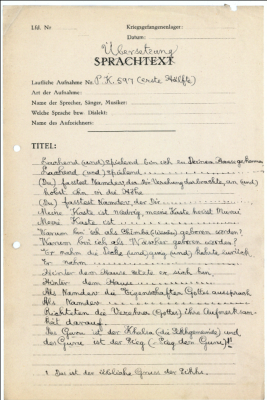 Lfd. Nr
Kriegsgefangenenlager:
Datum:
Übersetzung
SPRACHTEXT
Laufliche Aufnahme Nr. P.K. 597 (erste Hälfte)
Art der Aufnahme:
Name der Sprecher, Sänger, Musiker:
Welche Sprache bzw. Dialekt:
Name des Aufzeichners:
TITEL:
Lachend (und) spielend bin ich zu Deinem Hause gekommen
Lachend (und) spielend
(Du) fasstest Namdev, der Dir Verehrung darbrachte, an (und)
hobst ihn in die Höhe
(Du) fasstest Namdev, der Dir
Meine Kaste ist niedrig, meine Kaste
Meine Kaste ist
Warum bin ich als geboren worden?
Warum bin ich als geboren worden?
Er nahm die Decke (und ging und) kehrte zurück
Er nahm
Hinter dem Hause setzte er sich hin
Hinter dem Hause
Als Namdev die Eigenschaften Gottes aussprach
Als Namdev
Richteten die Verehrer (Gottes) ihre Aufmerksam-
keit darauf.
Der Guru ist der Khalsa (die Sikhgemeinde) und
der Guru ist der Sieg (- Sieg dem Guru)!¹
1 Das ist der übliche Gruss der Sikhs.